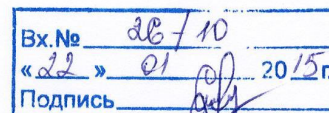 Вх.№ 26/10
«22» 01 2015г
Подпись